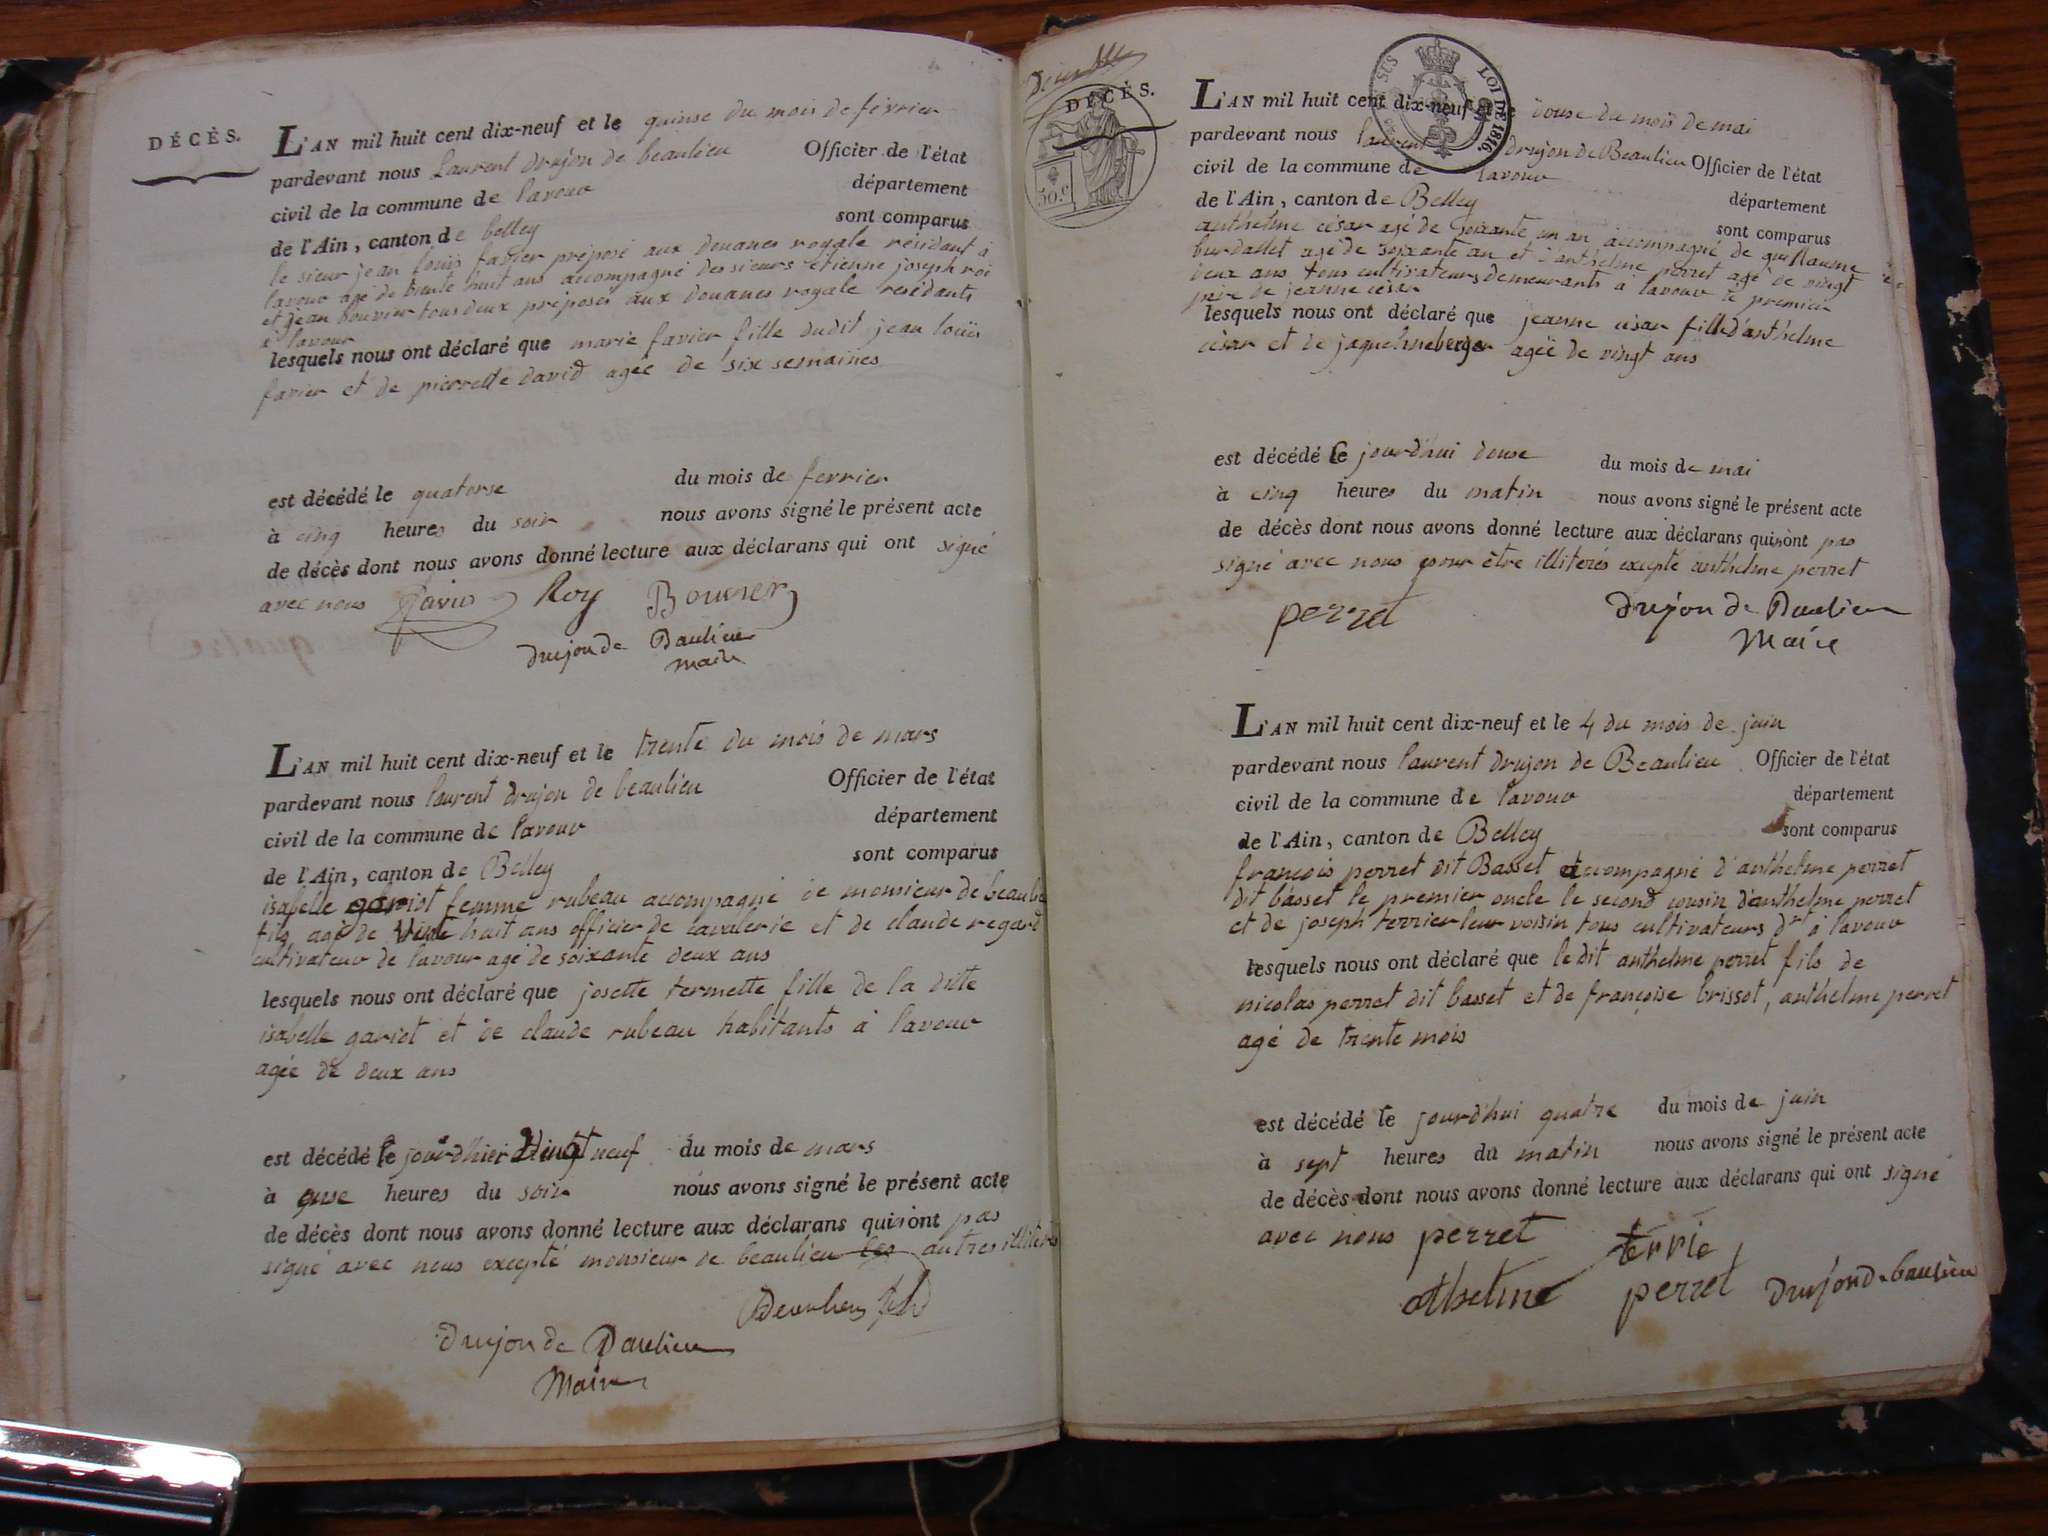 DÉCÈS.
L'AN mil huit cent dix-neuf et le quinse du mois de fevrier
pardevant nous Laurent drujon de beaulieu Officier de l'état
civil de la commune de lavour département
de l'Ain, canton de belley sont comparus
le sieur jean louis favier préposé aux douanes royale résidant à
lavour agé de trente huit ans accompagné des sieurs etienne joseph roi
et jean bouvier tous deux préposés aux douanes royale residants
à lavour
lesquels nous ont déclaré que marie favier fille dudit jean louiis
favier et de pierrette david agée de six semaines
est décédé le quatorse du mois de fevrier
à cinq heures du soir nous avons signé le présent acte
de décès dont nous avons donné lecture aux déclarans qui ont signé
avec nous favier Roy Bouvier
drujon de Baulieu
maire
L'AN mil huit cent dix-neuf et le trente du mois de mars
pardevant nous laurent drujon de beaulieu Officier de l'état
civil de la commune de lavour département
de l'Ain, canton de Belley sont comparus
isabelle gariot femme rubeau accompagné de monsieur de beaulieu
fils agé de vint huit ans officier de cavalerie et de claude regard
cultivateur de lavour agé de soixante deux ans
lesquels nous ont déclaré que josette termette fille de la ditte
isabelle gariot et de claude rubeau habitants à lavour
agée de deux ans
est décédé le jour d'hier vingt neuf du mois de mars
à onse heures du soir nous avons signé le présent acte
de décès dont nous avons donné lecture aux déclarans qui n'ont pas
signé avec nous excepté monsieur de beaulieu les autres illiterés
drujon de Baulieu
Maire
DÉCÈS.
50.c
LOI DE 1816.
L'AN mil huit cent dix-neuf et le douse du mois de mai
pardevant nous laurent drujon de Beaulieu Officier de l'état
civil de la commune de lavour département
de l'Ain, canton de Belley sont comparus
anthelme césar agé de soixante un an accompagné de guillaume
burdallet agé de soixante an et d'anthelme perret agé de vingt
deux ans tous cultivateurs demeurants à lavour le premier
père de jeanne césar
lesquels nous ont déclaré que jeanne césar fille d'anthelme
césar et de jaqueline berger agée de vingt ans
est décédé le jourd'hui douse du mois de mai
à cinq heures du matin nous avons signé le présent acte
de décès dont nous avons donné lecture aux déclarans qui n'ont pas
signé avec nous pour être illiterés excepté anthelme perret
perret drujon de Baulieu
Maire
L'AN mil huit cent dix-neuf et le 4 du mois de juin
pardevant nous laurent drujon de Beaulieu Officier de l'état
civil de la commune de lavour département
de l'Ain, canton de Belley sont comparus
françois perret dit Basset accompagné d'anthelme perret
dit basset le premier oncle le second cousin d'anthelme perret
et de joseph terrier leur voisin tous cultivateurs dt à lavour
lesquels nous ont déclaré que le dit anthelme perret fils de
nicolas perret dit basset et de françoise brissot, anthelme perret
agé de trente mois
est décédé le jourd'hui quatre du mois de juin
à sept heures du matin nous avons signé le présent acte
de décès dont nous avons donné lecture aux déclarans qui ont signé
avec nous perret terrie
athelme perret drujon de baulieu